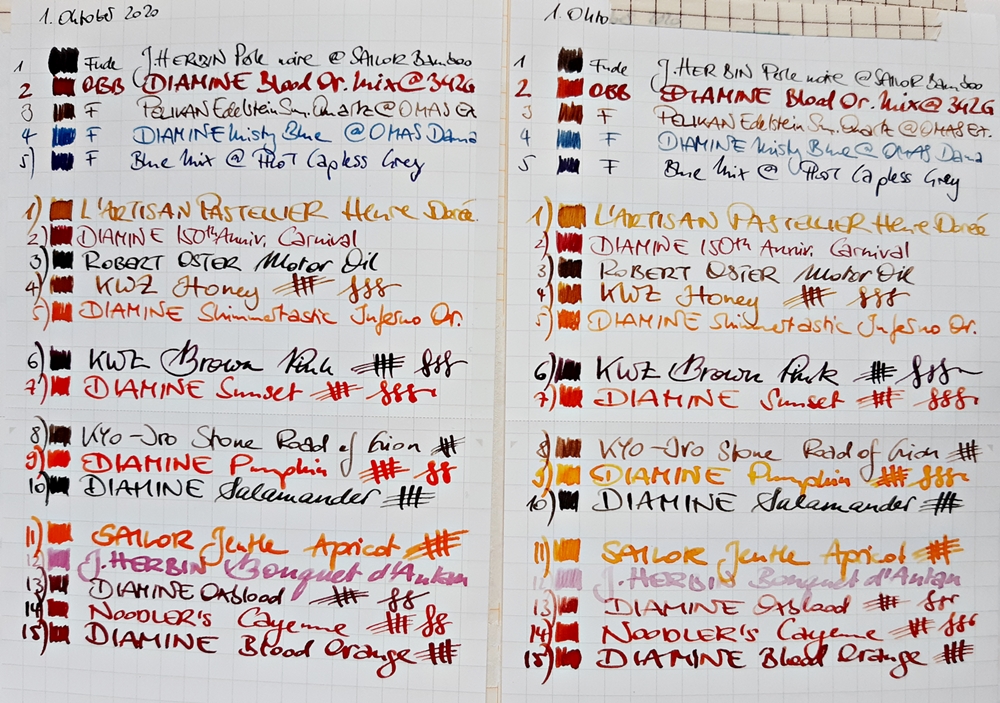 1. Oktober 2020
1 Fude J. HERBIN Perle noire @ SAILOR Bamboo
2 OBB DIAMINE Blood Or. Mix @ 342G
3 F PELIKAN Edelstein Sm. Quartz @ OMAS Ex.
4 F DIAMINE Misty Blue @ OMAS Dama
5) F Blue Mix @ PILOT Capless Grey
1) L'ARTISAN PASTELLIER Heure Dorée
2) DIAMINE 150th Anniv. Carnival
3) ROBERT OSTER Motor Oil
4) KWZ Honey
5) DIAMINE Shimmertastic Inferno Or.
6) KWZ Brown Pink
7) DIAMINE Sunset
8) KYO-Iro Stone Road of Gion
9) DIAMINE Pumpkin
10) DIAMINE Salamander
11) SAILOR Jentle Apricot
12 J. HERBIN Bouquet d'Antan
13) DIAMINE Oxblood
14) NOODLER'S Cayenne
15) DIAMINE Blood Orange
1. Okto
1 Fude J. HERBIN Perle noire @ SAILOR Bamboo
2 OBB DIAMINE Blood Or. Mix @ 342G
3 F PELIKAN Edelstein Sm. Quartz @ OMAS Ex.
4 F DIAMINE Misty Blue @ OMAS Dama
5 F Blue Mix @ PILOT Capless Grey
1) L'ARTISAN PASTELLIER Heure Dorée
2) DIAMINE 150th Anniv. Carnival
3) ROBERT OSTER Motor Oil
4) KWZ Honey
5) DIAMINE Shimmertastic Inferno Or.
6) KWZ Brown Pink
7) DIAMINE Sunset
8) KYO-Iro Stone Road of Gion
9) DIAMINE Pumpkin
10) DIAMINE Salamander
11) SAILOR Jentle Apricot
12 J. HERBIN Bouquet d'Antan
13) DIAMINE Oxblood
14) NOODLER'S Cayenne
15) DIAMINE Blood Orange